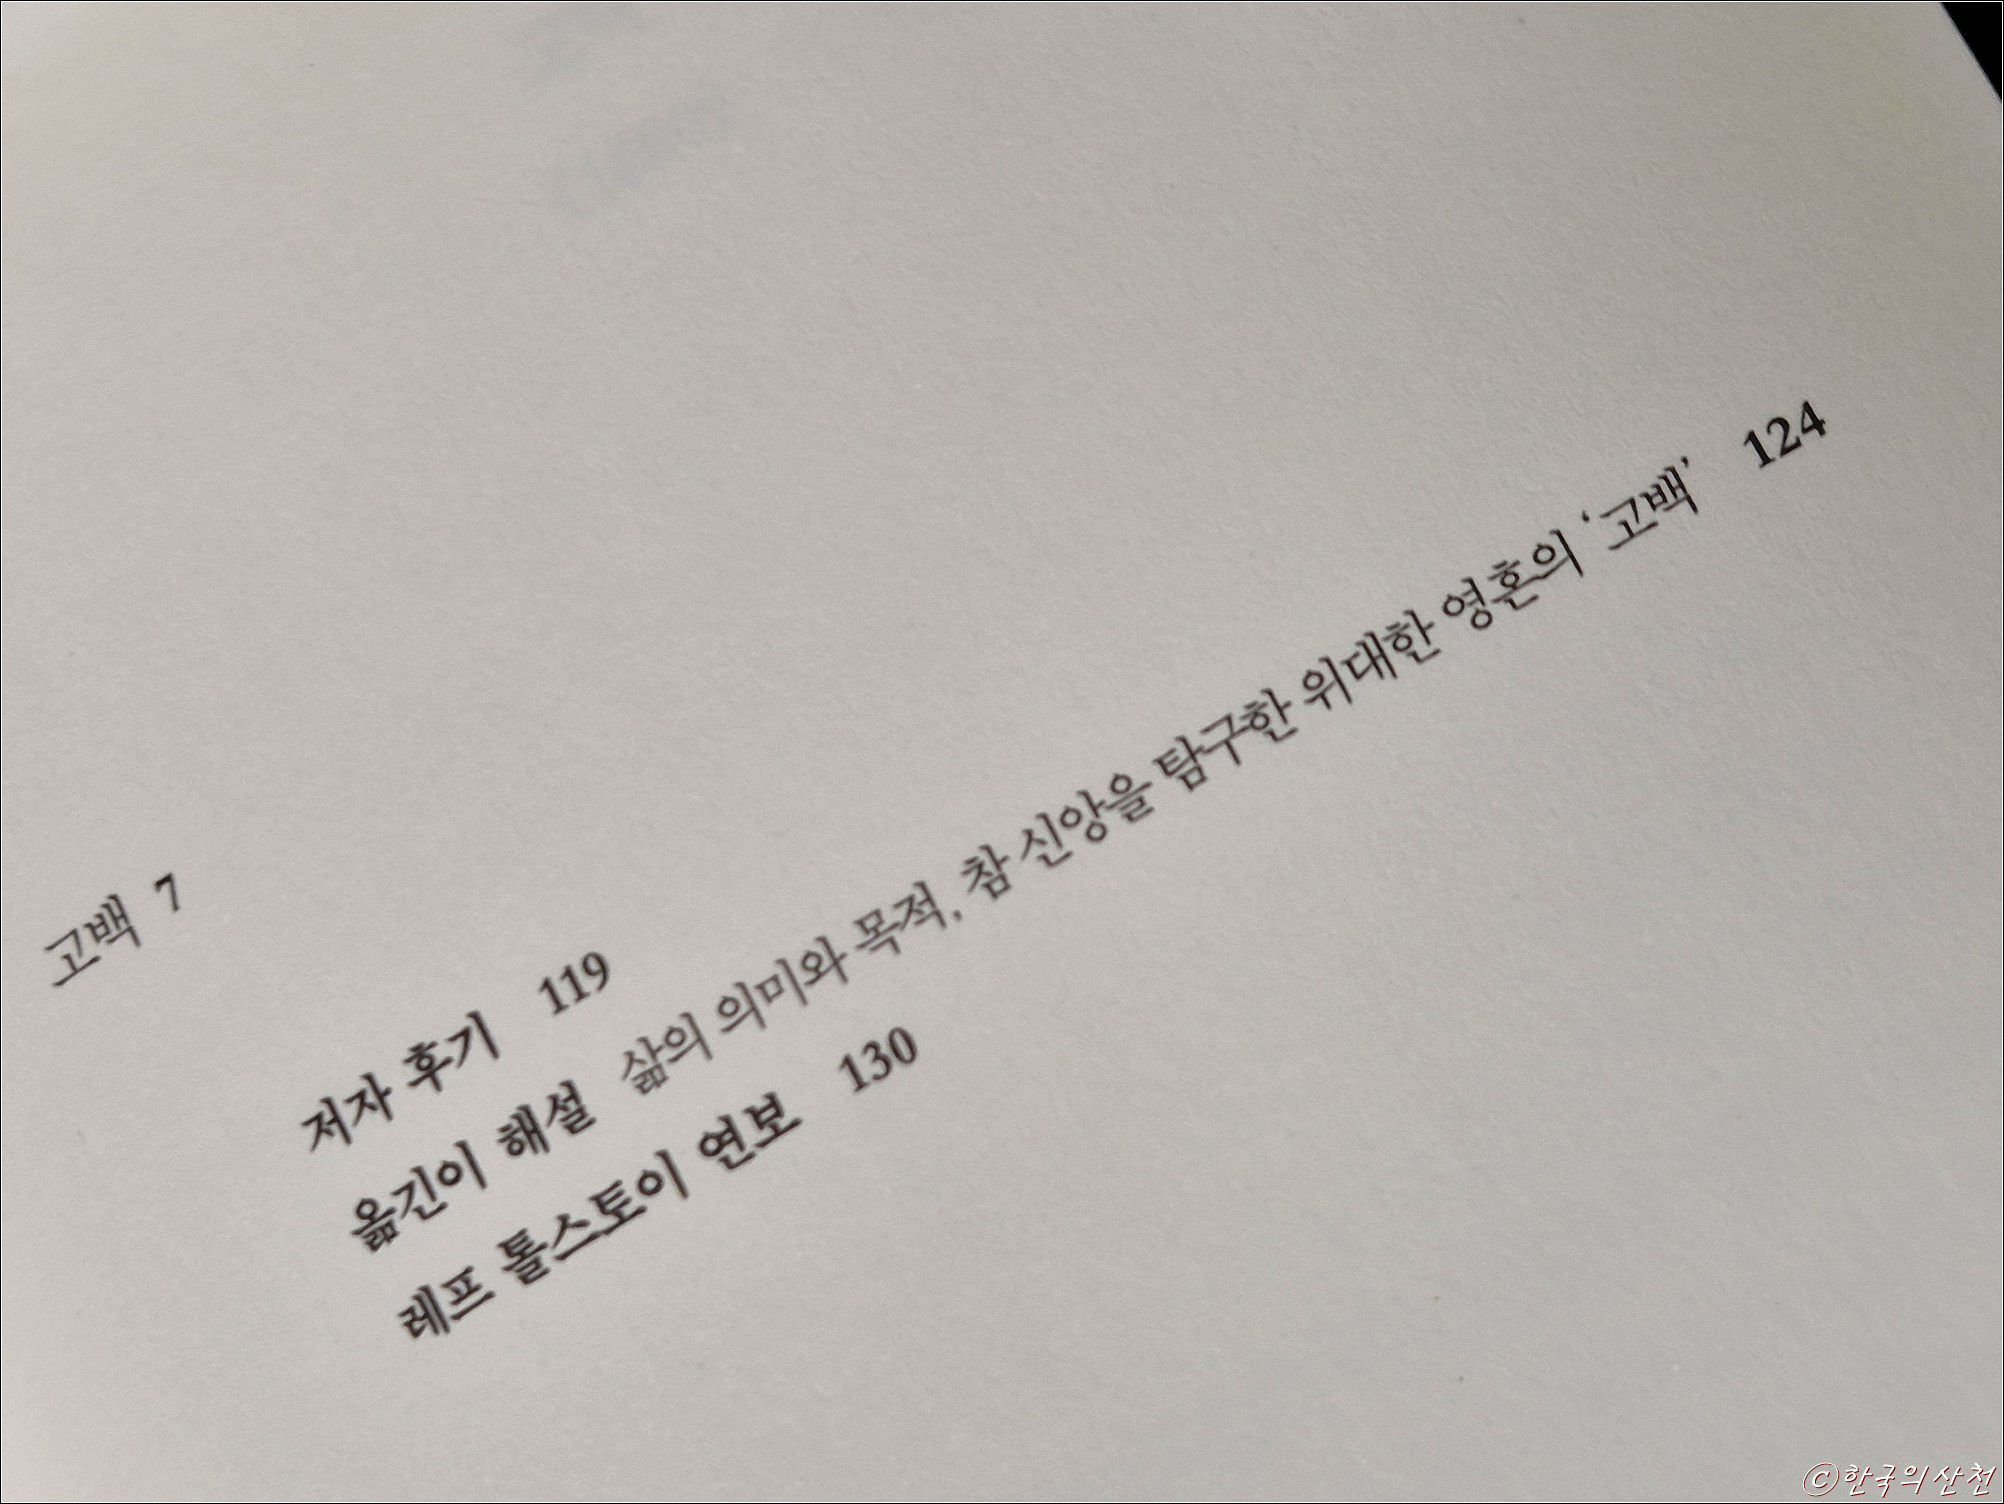 고백 7
저자 후기 119
옮긴이 해설 삶의 의미와 목적, 참 신앙을 탐구한 위대한 영혼의 ‘고백’ 124
레프 톨스토이 연보 130
©한국의산천